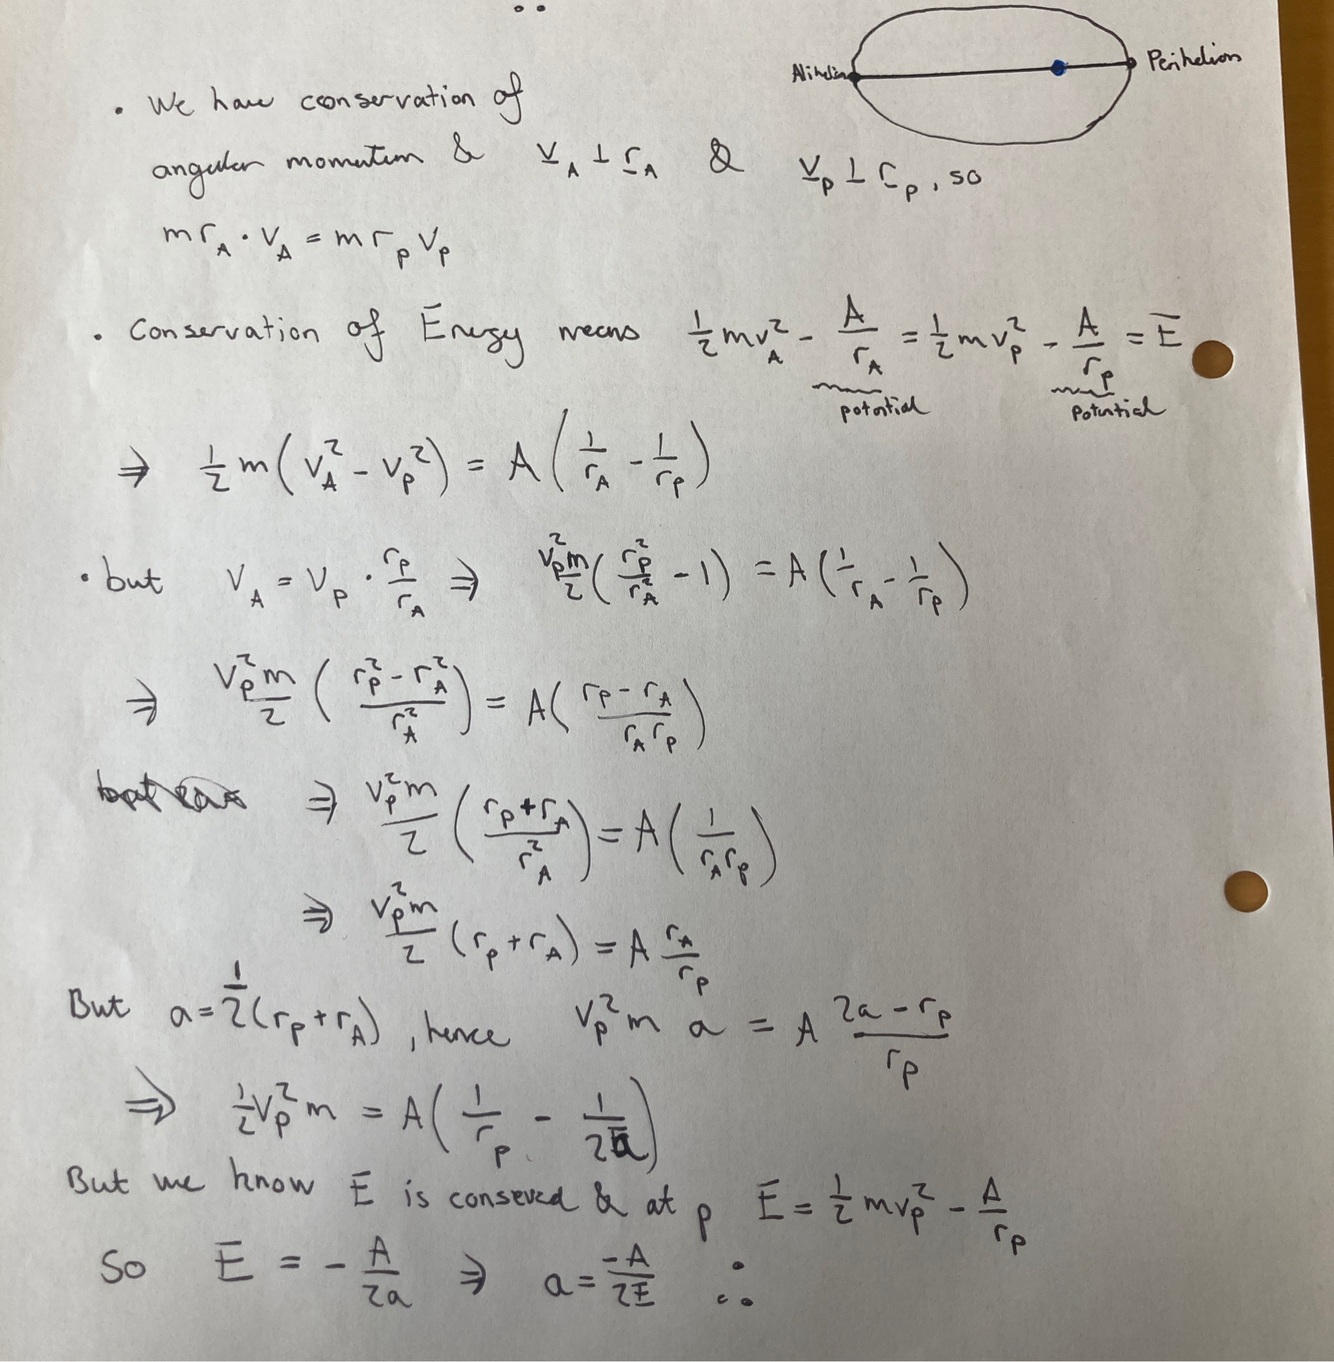 ∴
Alihelion Perihelion
• We have conservation of
angular momentum & v_A ⊥ r_A & v_p ⊥ r_p, so
m r_A · v_A = m r_p v_p
• Conservation of Energy means ½ m v_A² - A/r_A = ½ m v_p² - A/r_p = E
potential potential
⇒ ½ m (v_A² - v_p²) = A (1/r_A - 1/r_p)
• but v_A = v_p · r_p/r_A ⇒ v_p² m/2 (r_p²/r_A² - 1) = A (1/r_A - 1/r_p)
⇒ v_p² m/2 ((r_p² - r_A²)/r_A²) = A ((r_p - r_A)/(r_A r_p))
⇒ v_p² m/2 ((r_p + r_A)/r_A²) = A (1/(r_A r_p))
⇒ v_p² m/2 (r_p + r_A) = A r_A/r_p
But a = ½ (r_p + r_A), hence v_p² m a = A (2a - r_p)/r_p
⇒ ½ v_p² m = A (1/r_p - 1/2a)
But we know E is conseved & at p E = ½ m v_p² - A/r_p
So E = - A/2a ⇒ a = -A/2E ∴